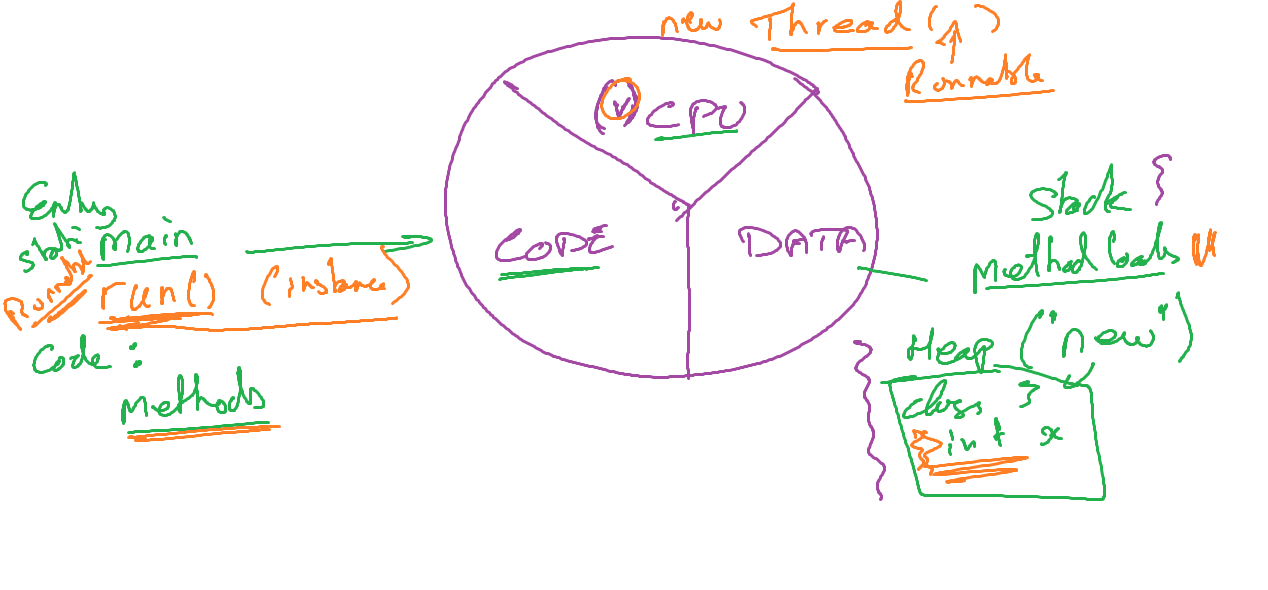 new Thread ( )
Runnable
(v) CPU
Entry
static main
Runnable
run() (instance)
Code :
Methods
CODE
DATA
Stack }
Method locals
Heap ("new")
class {
} int x